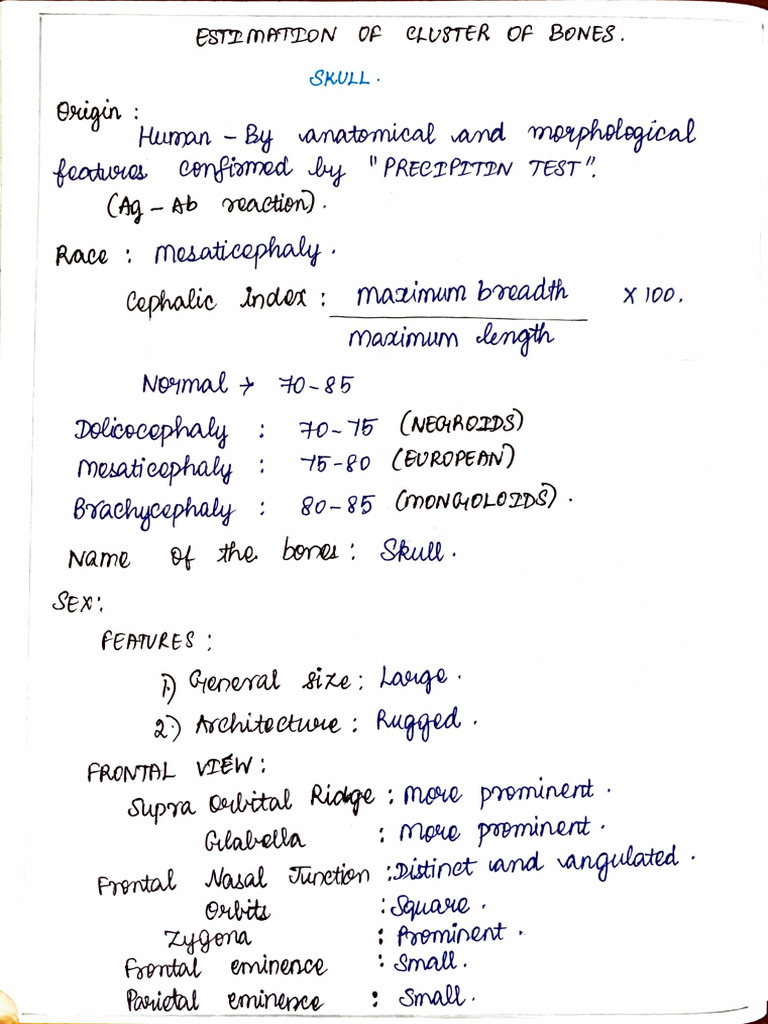 ESTIMATION OF CLUSTER OF BONES.
SKULL.
Origin :
Human - By anatomical and morphological
features confirmed by "PRECIPITIN TEST".
(Ag - Ab reaction).
Race : Mesaticephaly.
Cephalic index : maximum breadth X 100.
maximum length
Normal → 70-85
Dolicocephaly : 70-75 (NEGROIDS)
Mesaticephaly : 75-80 (EUROPEAN)
Brachycephaly : 80-85 (MONGOLOIDS).
Name of the bones : Skull.
SEX:
FEATURES :
1) General size : Large.
2) Architecture : Rugged.
FRONTAL VIEW :
Supra Orbital Ridge : More prominent.
Glabella : More prominent.
Frontal Nasal Junction : Distinct and angulated.
Orbits : Square.
Zygona : Prominent.
Frontal eminence : Small.
Parietal eminence : Small.